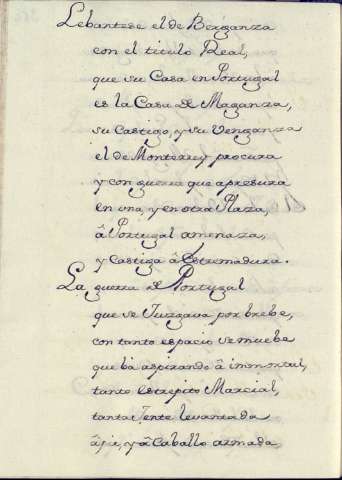 Lebantese el de Berganza
con el titulo Real,
que su Casa en Portugal
es la Casa de Maganza,
su Castigo, y su Venganza
el de Monterruy procura
y con guerra que apresura
en una, y en otra Plaza,
â Portugal amenaza,
y Castiga â Estremadura.
La guerra de Portugal
que se Juzgava por brebe,
con tanto espacio se muebe
que bâ aspirando â immortal,
tanto estrepito Marcial,
tanta Jente levantada
âpie, y â Caballo armada,